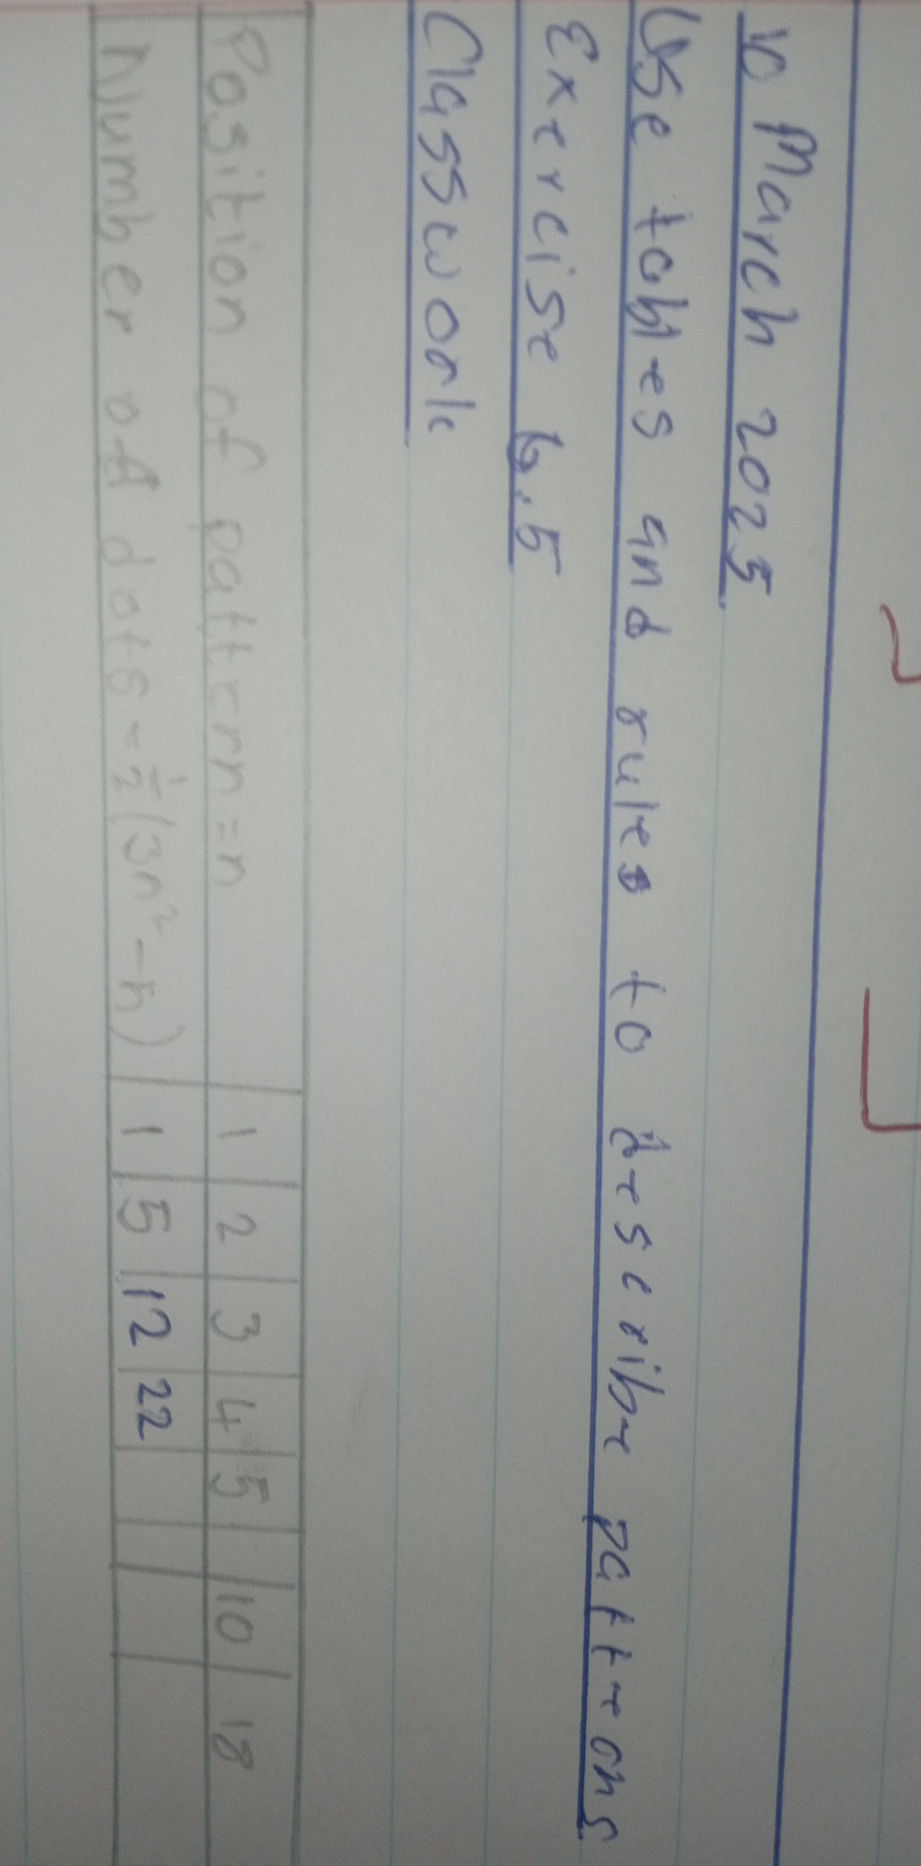 10 March 2025
Use tables and rules to describe patterns
Exercise 6.5
Classwork
Position of pattern = n 1 2 3 4 5 10 18
Number of dots = 1/2 (3n² - n) 1 5 12 22